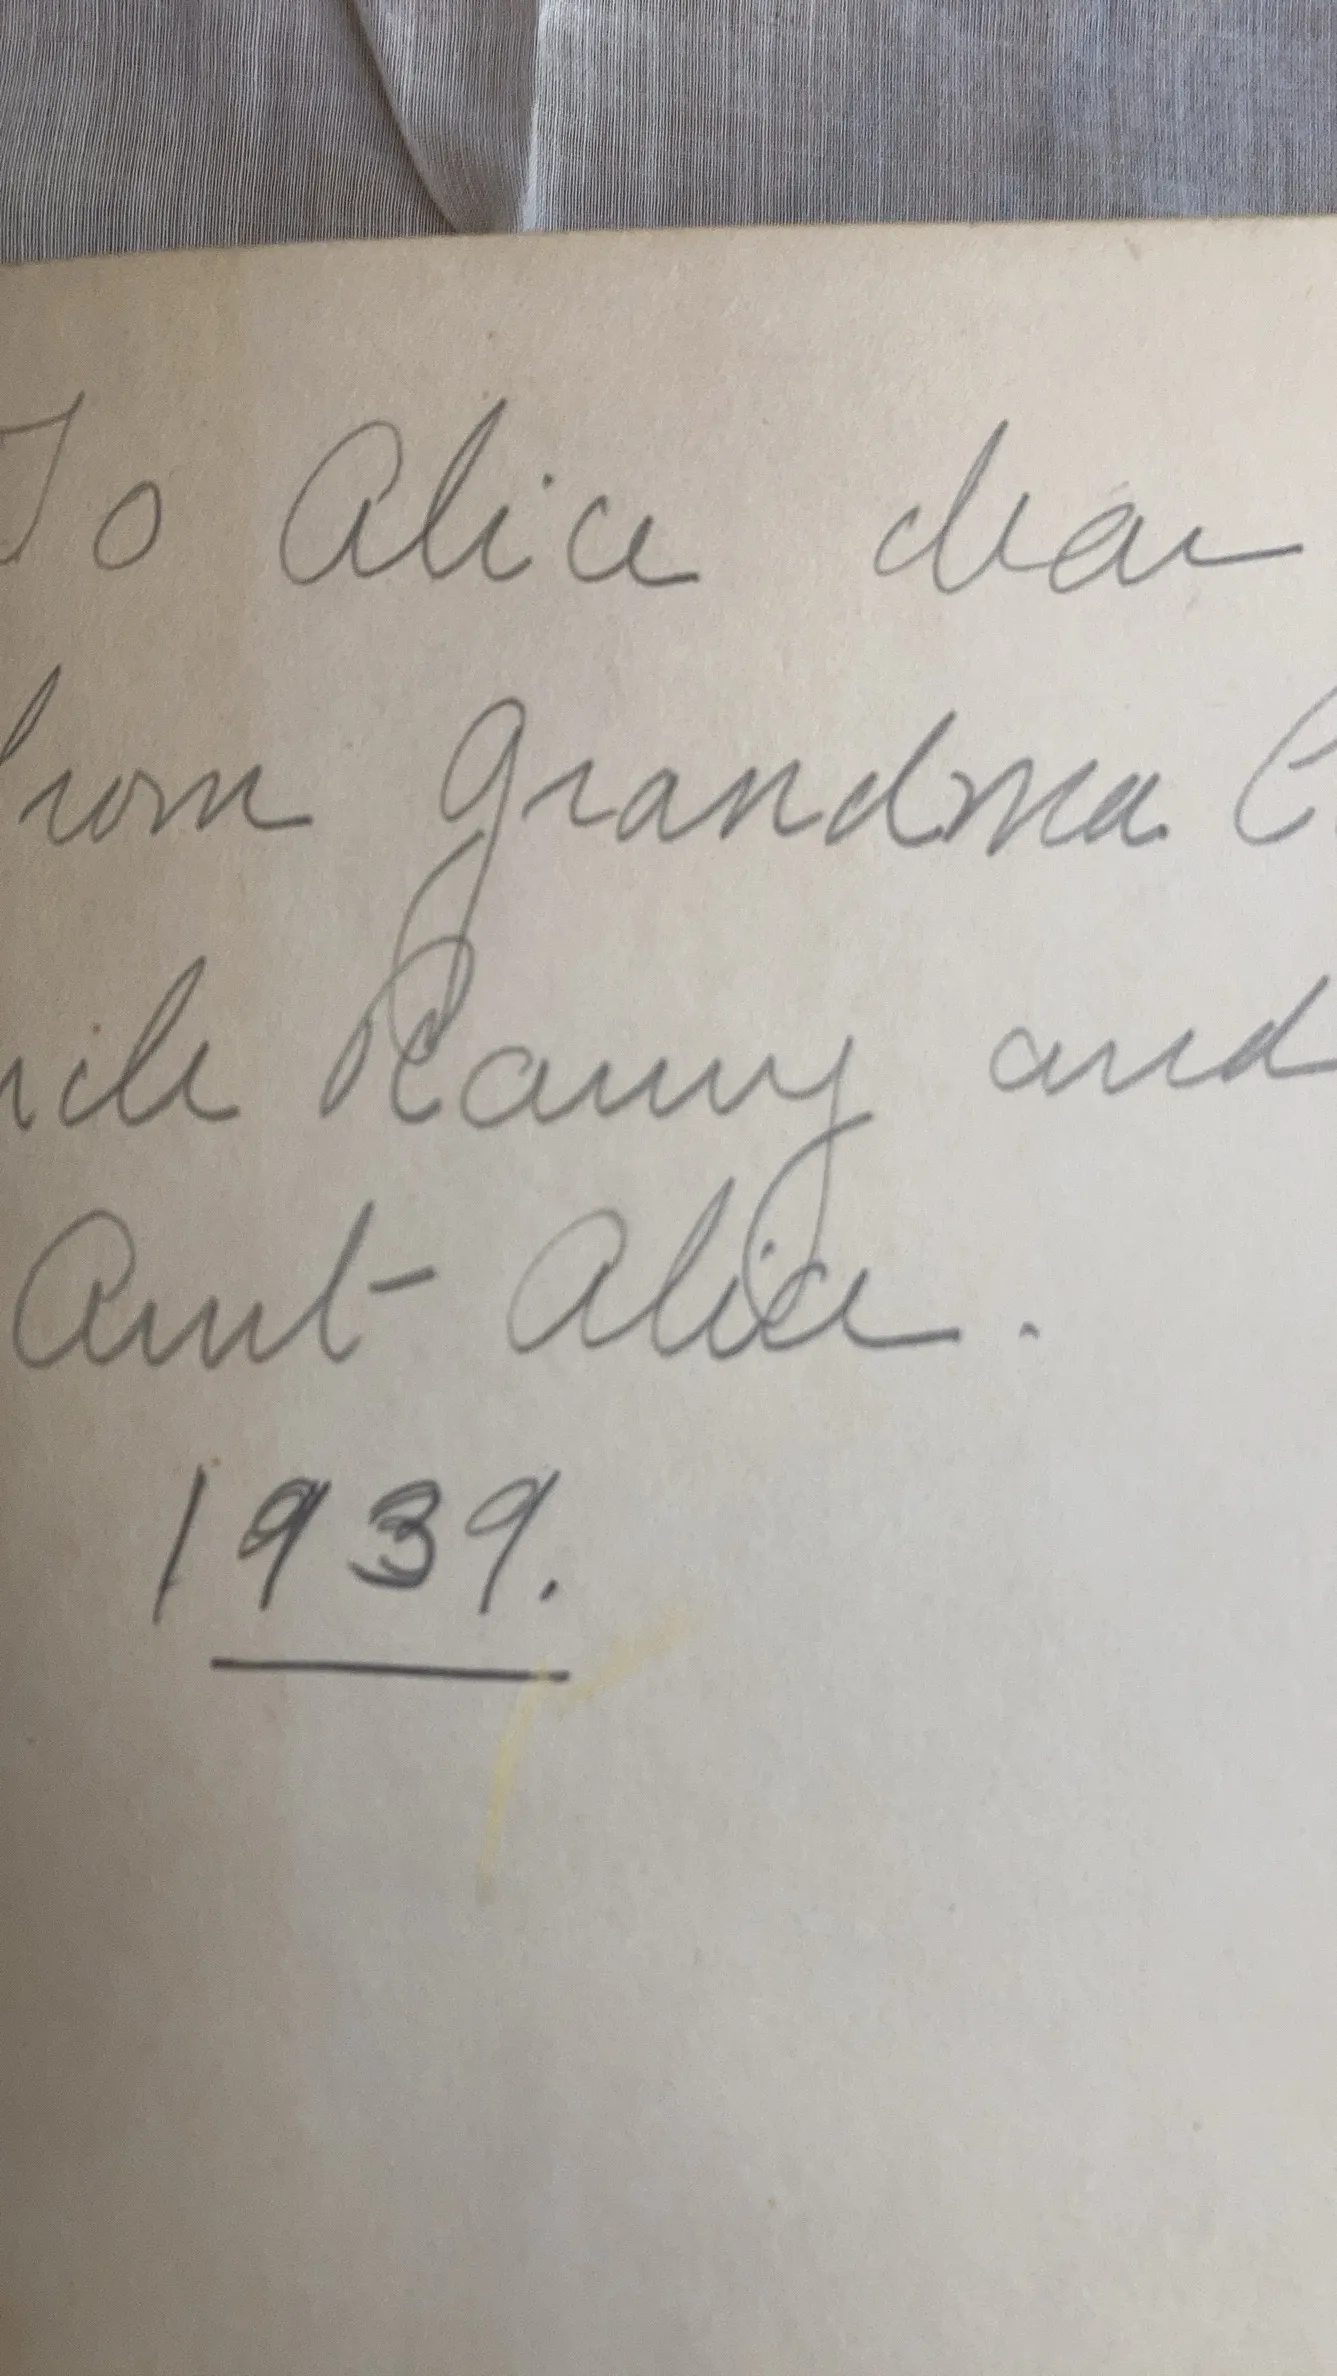 To Alice dear
from Grandma C
ncle Ranny and
Aunt Alice.
1939.